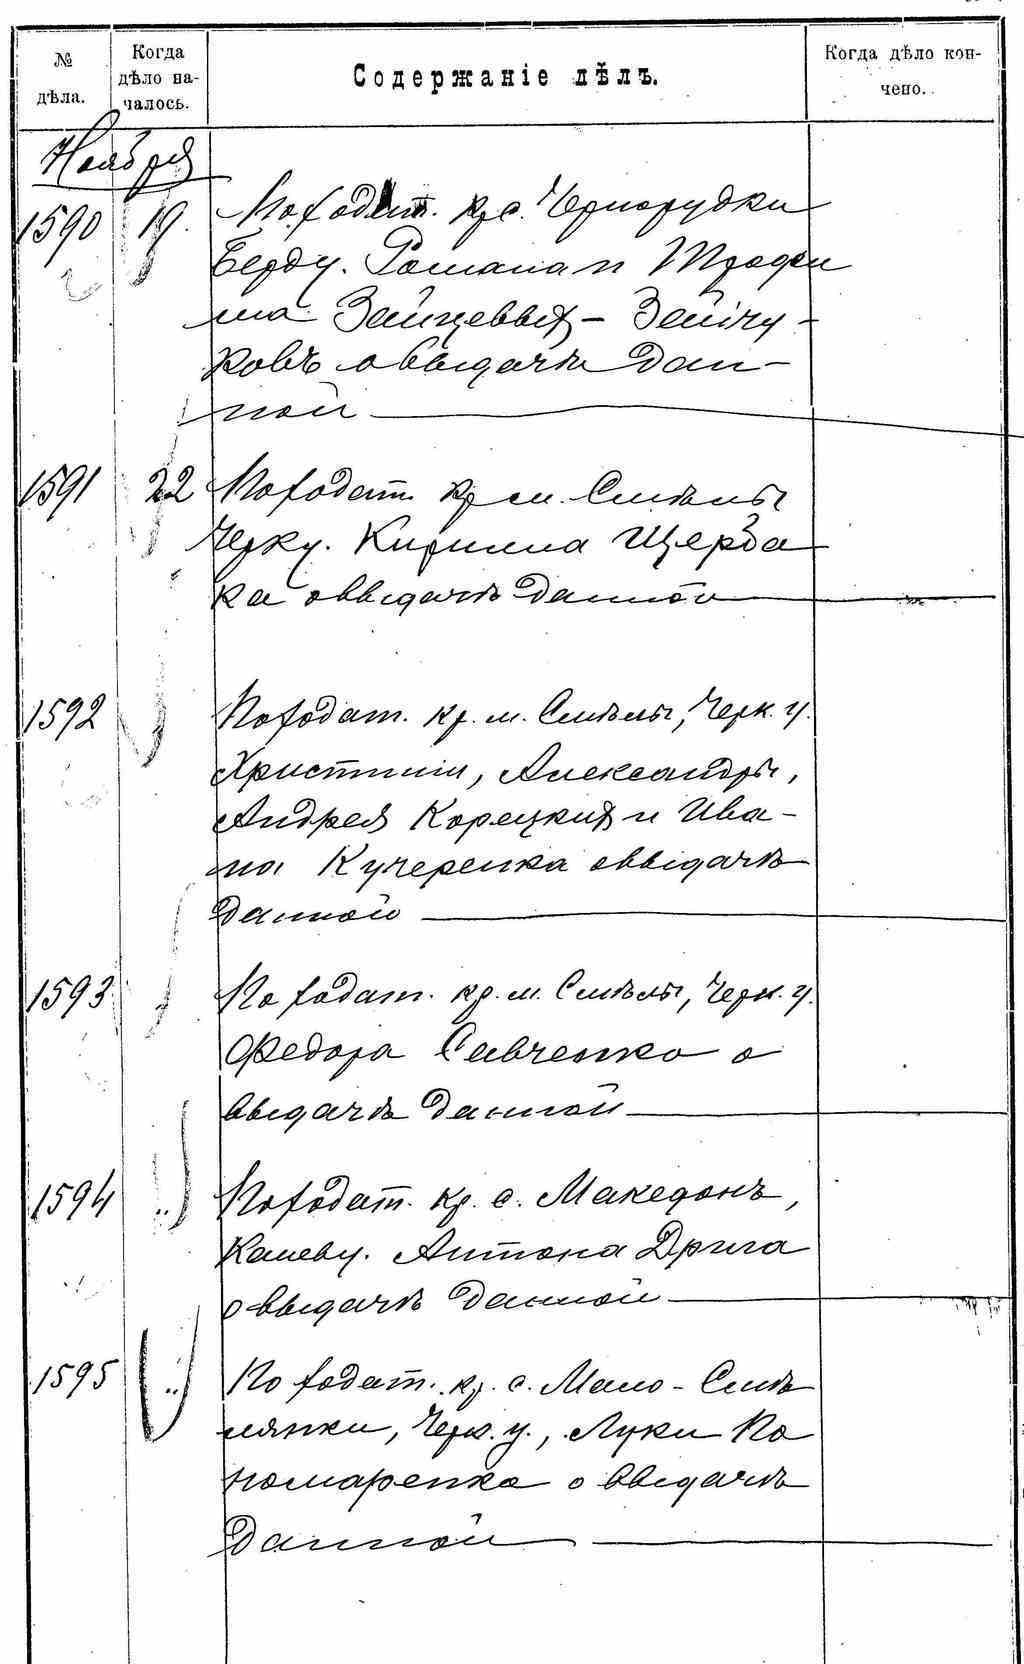 № дѣла.
Когда дѣло началось.
Содержаніе дѣлъ.
Когда дѣло кончено.
Ноября
1590 19. По ходат. кр. с. Чернорудки
Берду. Романа и Трофи
ма Зайцевыхъ – Зайчу-
ковъ о выдачѣ дан-
ной
1591 22 По ходат. кр. м. Смѣлы
Черку. Кирилла Щерба
ка о выдачѣ данной
1592 По ходат. кр. м. Смѣлы, Черк. у.
Христиніи, Александры,
Андрея Корецкихъ и Ива-
на Кучеренка о выдачѣ
данной
1593 По ходат. кр. м. Смѣлы, Черк. у.
Федора Савченко о
выдачѣ данной
1594 „ По ходат. кр. с. Македонъ,
Каневу. Антона Дрига
о выдачѣ данной
1595 „ По ходат. кр. с. Мало-Смѣ
лянки, Черк. у., Луки По
номаренка о выдачѣ
данной